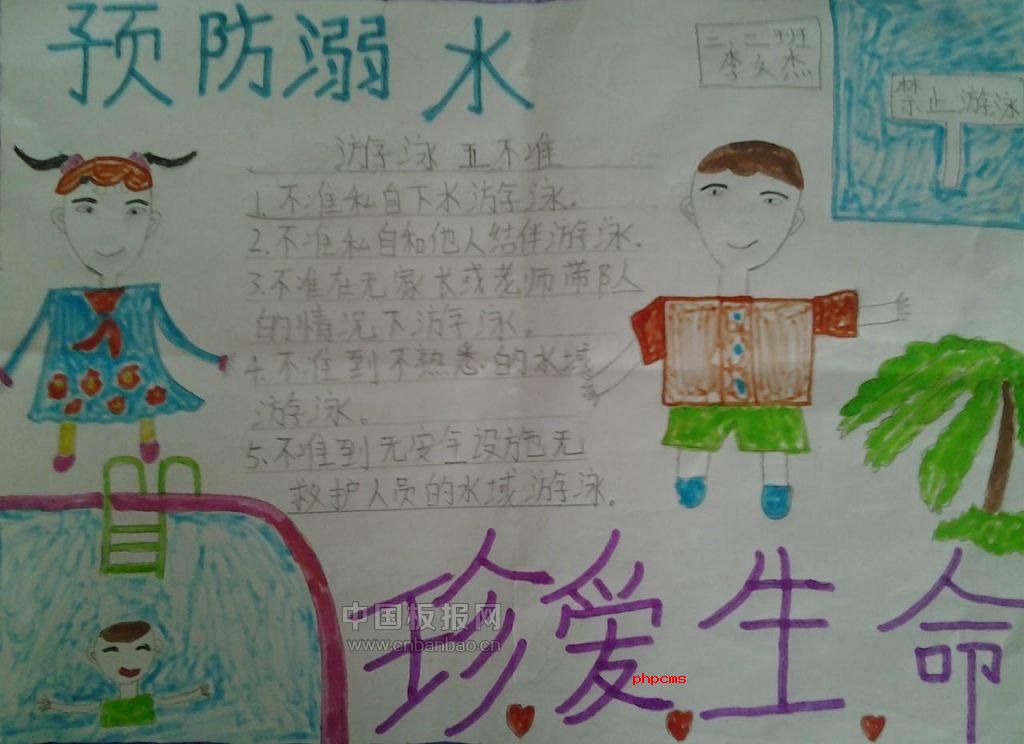 预防溺水
二、二班
李文杰
禁止游泳
游泳五不准
1.不准私自下水游泳。
2.不准私自和他人结伴游泳.
3.不准在无家长或老师带队
的情况下游泳。
4.不准到不熟悉的水域
游泳。
5.不准到无安全设施无
救护人员的水域游泳。
珍爱生命
中国板报网
www.cnbanbao.cn
phpcms